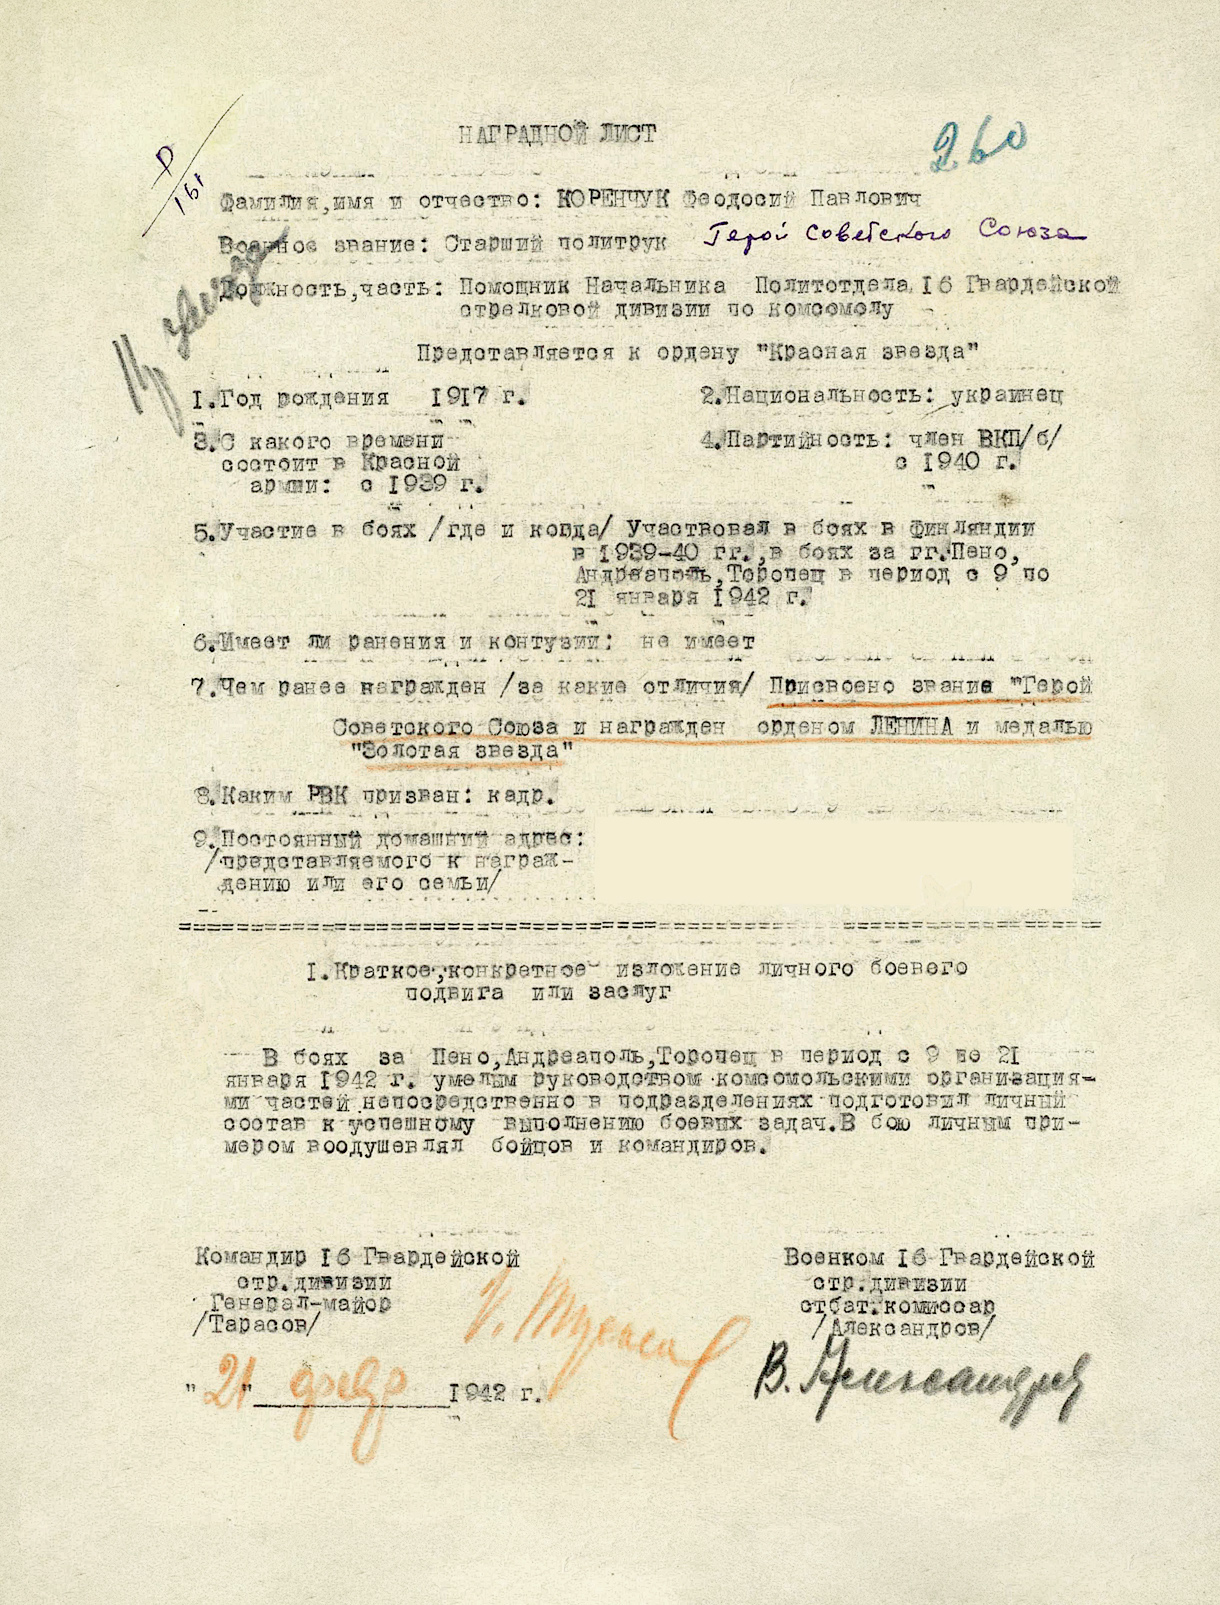 НАГРАДНОЙ ЛИСТ
260
Р/161
Фамилия,имя и отчество: КОРЕНЧУК Феодосий Павлович
Военное звание: Старший политрук Герой Советского Союза
Должность,часть: Помощник Начальника Политотдела 16 Гвардейской
стрелковой дивизии по комсомолу
Представляется к ордену "Красная звезда"
1.Год рождения 1917 г.
2.Национальность: украинец
3.С какого времени
состоит в Красной
армии: с 1939 г.
4.Партийность: член ВКП/б/
с 1940 г.
5.Участие в боях /где и когда/ Участвовал в боях в Финляндии
в 1939-40 гг.,в боях за гг.Пено,
Андреаполь,Торопец в период с 9 по
21 января 1942 г.
6.Имеет ли ранения и контузии: не имеет
7.Чем ранее награжден /за какие отличия/ Присвоено звание "Герой
Советского Союза и награжден орденом ЛЕНИНА и медалью
"Золотая звезда"
8.Каким РВК призван: кадр.
9.Постоянный домашний адрес:
/представляемого к награж-
дению или его семьи/
I.Краткое,конкретное изложение личного боевого
подвига или заслуг
В боях за Пено,Андреаполь,Торопец в период с 9 по 21
января 1942 г. умелым руководством комсомольскими организация-
ми частей непосредственно в подразделениях подготовил личный
состав к успешному выполнению боевых задач.В бою личным при-
мером воодушевлял бойцов и командиров.
Командир 16 Гвардейской
стр.дивизии
Генерал-майор
/Тарасов/
Военком 16 Гвардейской
стр.дивизии
стбат.комиссар
/Александров/
В. Александров
"21" февр 1942 г.